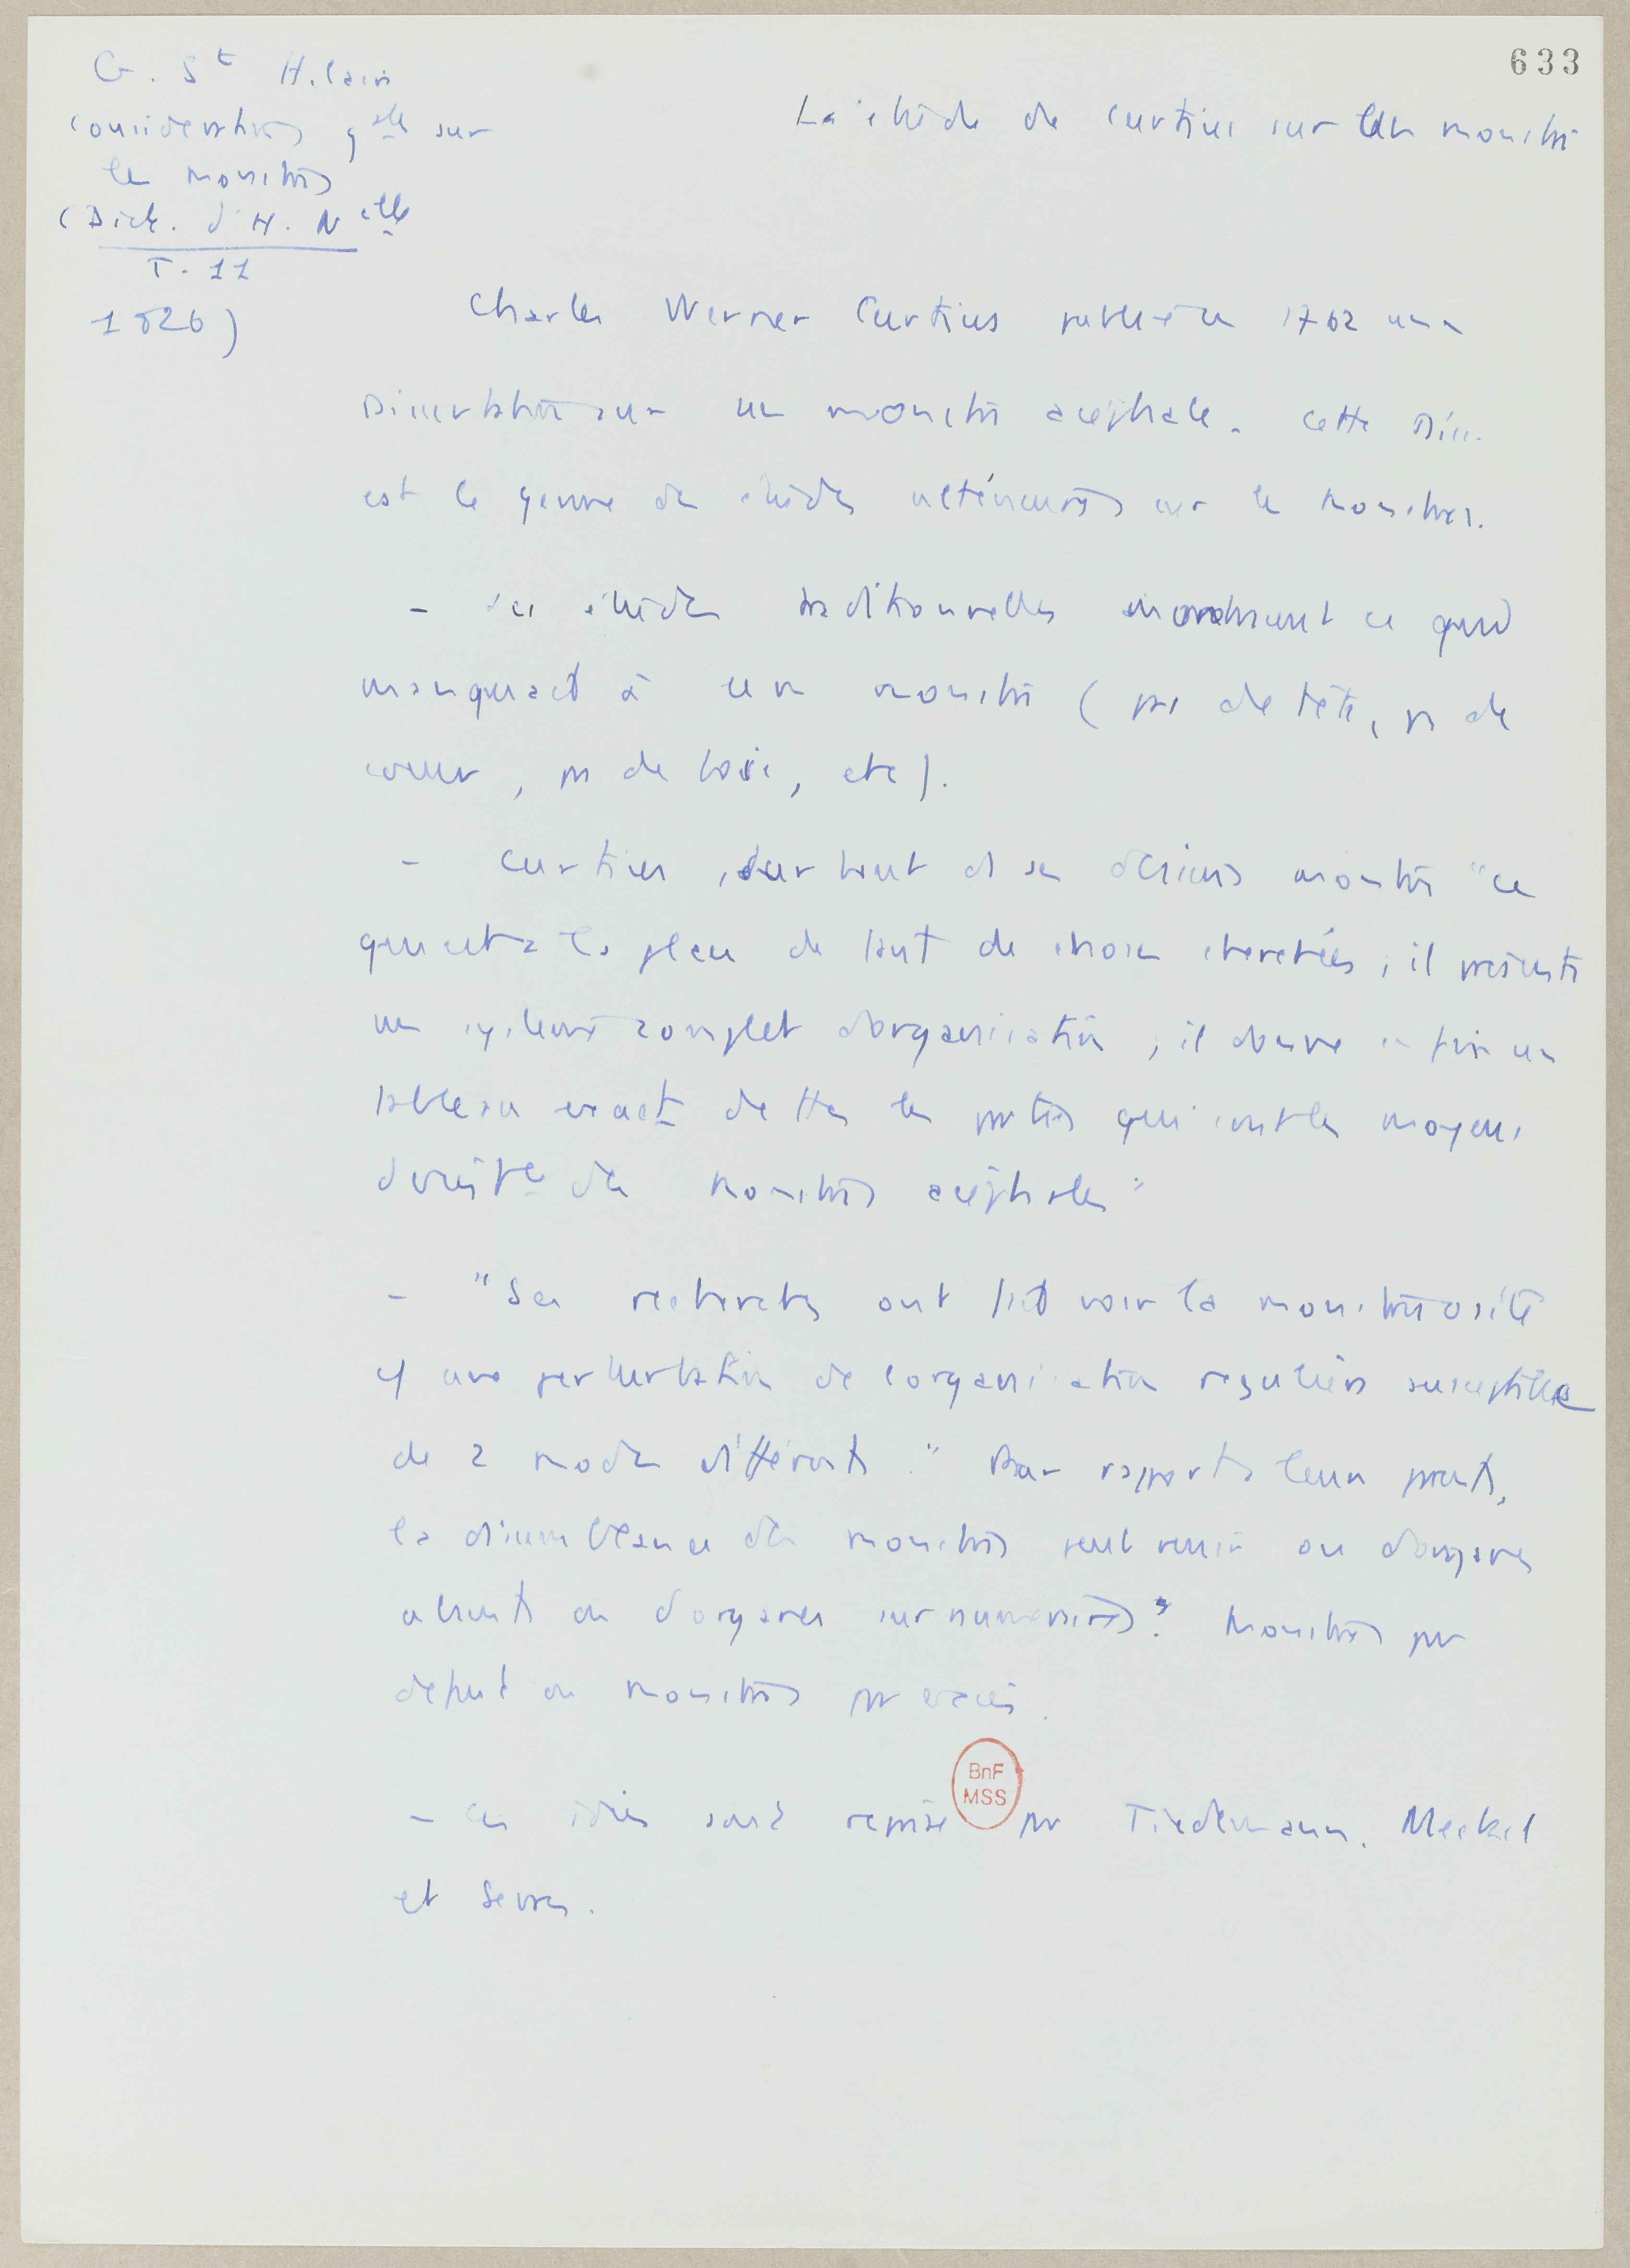 633
G. St Hilaire
Considérations glles sur
les monstres
(Dict. d'H. Nlle
T. 11
1826)
L'étude de Curtius sur les monstres
Charles Werner Curtius publie en 1762 une
Dissertation sur un monstre acéphale. Cette Diss.
est le genre des études ultérieures sur les monstres.
- études traditionnelles ce qui
manquait à un monstre (pas de tête, pas de
coeur, pas de foie, etc).
- Curtius, surtout ds son dernier monstre "ce
qui est à la place de tant de choses cherchées ; il présente
un système complet d'organisation ; il donne enfin un
tableau exact de ttes les parties qui sont les moyens
d'exist^ce des monstres acéphales"
- "Ses recherches ont fait voir la monstruosité
cô une perturbation de l'organisation régulière susceptible
de 2 modes différents." Par rapport à leurs parents,
la dissemblance des monstres peut venir ou d'organes
absents ou d'organes surnuméraires." Monstres par
défaut ou monstres par excès.
BnF
MSS
- Ces idées sont reprises par Tiedemann, Meckel
et Serres.